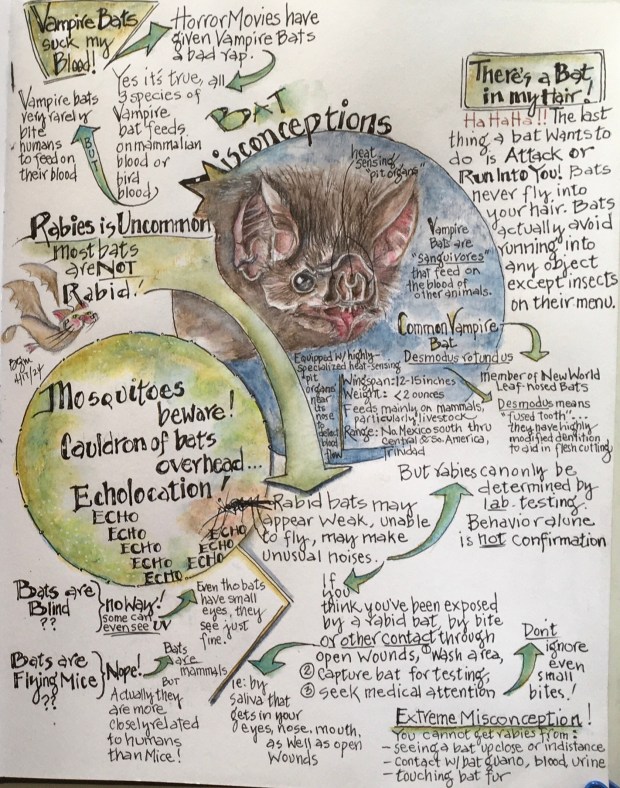 Vampire Bats
suck my
Blood!
Horror Movies have
given Vampire Bats
a bad rap.
Yes it's true, all
3 species of
Vampire
bat feeds
on mammalian
blood or
bird
blood
BUT
Vampire bats
very rarely
bite
humans
to feed on
their blood
BAT
Misconceptions
There's a Bat
in my Hair!
Ha Ha Ha!! The last
thing a bat wants to
do is Attack or
Run Into You! Bats
never fly into
your hair. Bats
actually avoid
"running" into
any object
except insects
on their menu.
heat
sensing
"pit organs"
Vampire
Bats are
"sanguivores"
that feed on
the blood of
other animals.
Rabies is Uncommon
most bats
are NOT
Rabid!
Bgm
4/17/24
Common Vampire
Bat
Desmodus rotundus
member of New World
Leaf-Nosed Bats
Desmodus means
"fused tooth"...
they have highly
modified dentition
to aid in flesh cutting
Equipped w/ highly-
specialized heat-sensing
"pit
organs"
near
its
nose
to
detect
blood
flow
Wingspan: 12-15 inches
Weight: <2 ounces
Feeds mainly on mammals,
particularly livestock
Range: No. Mexico south thru
Central & So. America,
Trinidad
Mosquitoes
beware!
Cauldron of bats
overhead...
Echolocation!
ECHO
ECHO
ECHO
ECHO
ECHO
ECHO
ECHO
ECHO
Rabid bats may
appear weak, unable
to fly, may make
unusual noises.
But rabies can only be
determined by
lab testing.
Behavior alone
is not confirmation
If
you
think you've been exposed
by a rabid bat, by bite
or other contact through
open wounds, ① wash area,
② Capture bat for testing,
③ seek medical attention
Don't
ignore
even
small
bites!
ie: by
saliva that
gets in your
eyes, nose, mouth,
as well as open
wounds
Bats are
Blind
??
no way!
some can
even see UV
Even tho bats
have small
eyes, they
see just
fine.
Bats are
Flying Mice
??
Nope!
Bats
are
mammals
BUT
Actually they
are more
closely related
to humans
than Mice!
Extreme Misconception!
You cannot get rabies from:
- seeing a bat up close or in distance
- contact w/ bat guano, blood, urine
- touching bat fur